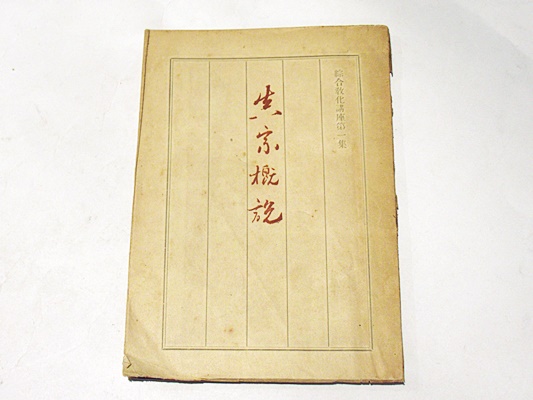 綜合敎化講座第一集
真宗概説